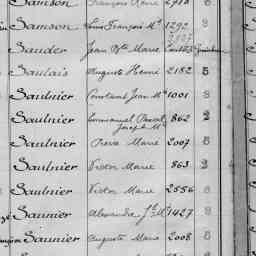 Samson François René 2918 8
Samson Louis François Mie 1292 8
2827
Sander Jean Bte Marie
Saulais Auguste Henri 2182 8
Saulnier Constant Jean Mie 1001 8
Saulnier Emmanuel Pascal 862 2
Joseph Mie
Saulnier Pierre Marie 2007 8
Saulnier Victor Marie 863 2
Saulnier Victor Marie 2556 8
Saunier Alexandre Jh Mie 1427 8
Saunier Auguste Marie 2008 8